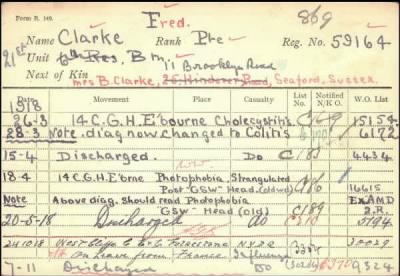 Form B. 149.
Fred. 869
Name Clarke Rank Pte Reg. No. 59164
21st Unit 6th Res. Bn. 11 Brooklyn Road
Next of Kin Mrs B. Clarke, 26 Hinderer Road, Seaford, Sussex.
Date Movement Casualty List No. Notified N/K O. W.O. List
1918
26-3 14 C.G.H. E'bourne Cholecystitis C 169 15154
28-3 Note. diag now changed to Colitis 6172
15-4 Discharged. Do C 183 4434
18-4 14 C.G.H. E'brne Photophobia, Strangulated
Post "GSW" Head (old wd) C 186 16615
Note Above diag. Should read Photophobia EXAMD
"GSW" Head (old) C 189 S.R.
20-5-18 Discharged do C 210 5194
24 10 18 West Cliffe C. E & E. Folkestone N.Y.D. 30029
On Leave from France. Influenza
7-11 Discharged Do 6370 9324